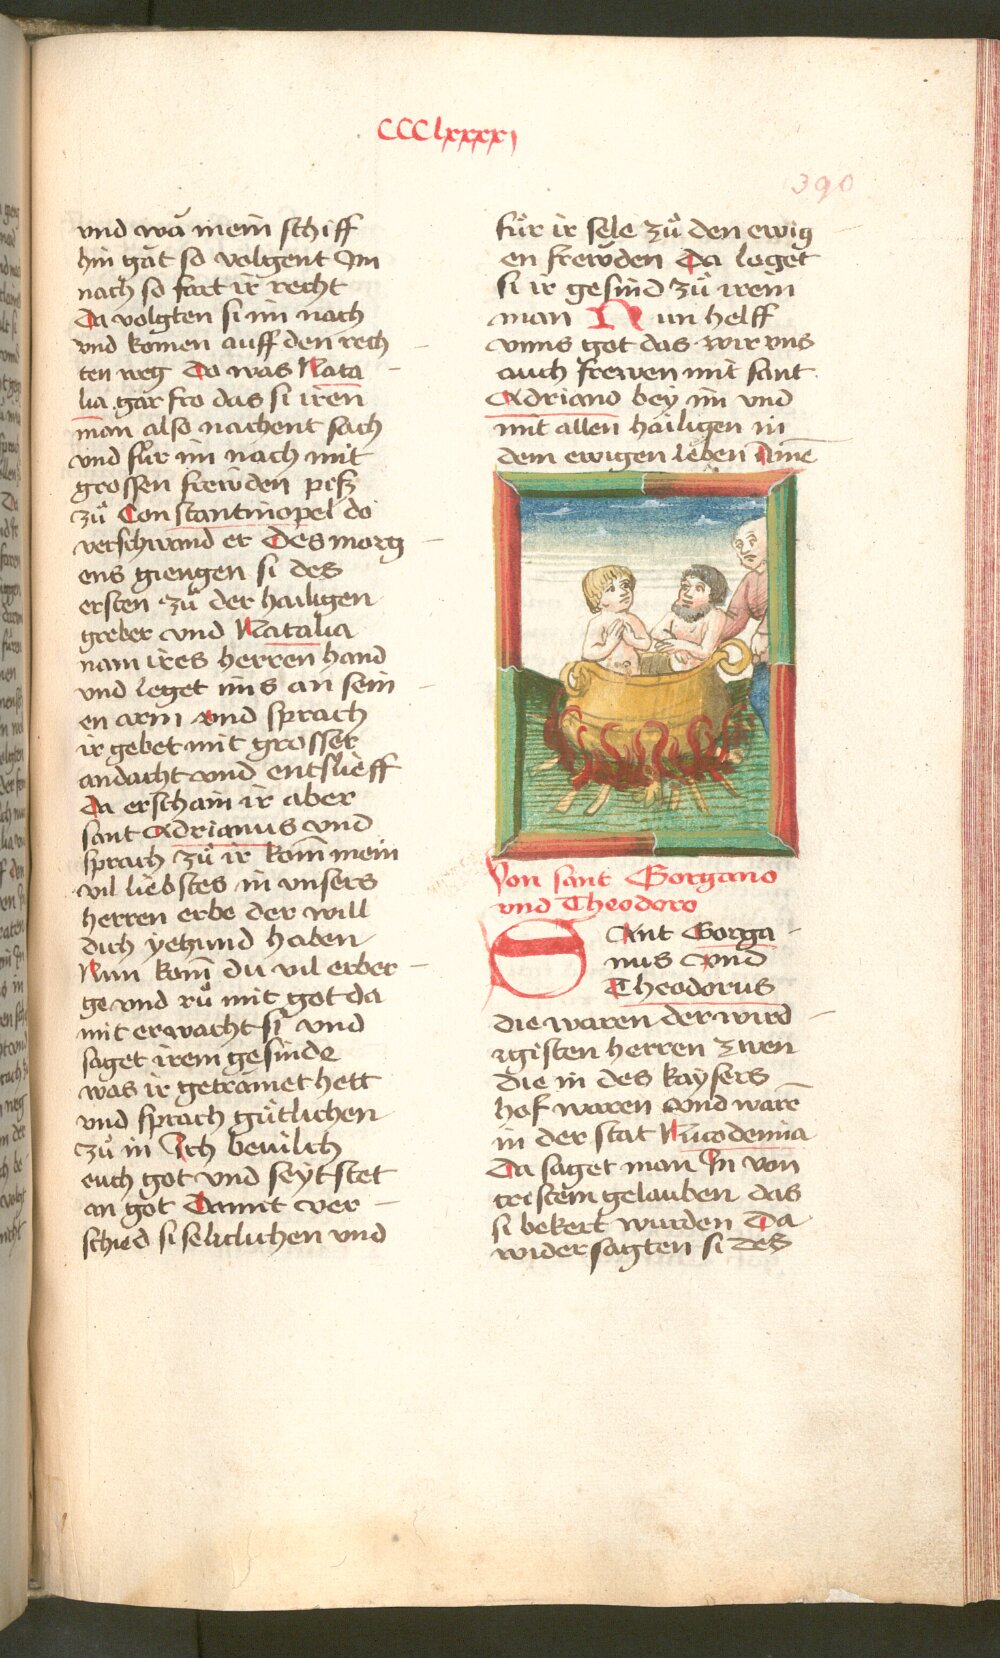 CCClxxxxj
390
vnd wa mein schiff
hin găt so volgent Im
nach so fart ir recht
Da volgten si im nach
vnd komen auff den rech
ten weg Do was Nata
lia gar fro das si iren
man also nachent sach
vnd fůr im nach mit
grossen frewden pisz
zů Constantinopel do
verschwand er Des morg
ens giengen si des
ersten zů der hailigen
greber vnd Natalia
nam ires herren hand
vnd leget ims an sein
en arm vnd sprach
ir gebet mit grosser
andacht vnd entslieff
Da erschain ir aber
sant Adrianus vnd
sprach zů ir kom mein
vil liebstes in vnsers
herren erbe der will
dich yetzund haben
Nun kom du vil erber
ge vnd rů mit got da
mit erwacht si vnd
saget irem gesinde
was ir getramet hett
vnd sprach gůtlichen
zů in Ich beuilch
euch got vnd seyt stet
an got Damit ver
schied si seliclichen vnd
fůr ir sele zů den ewig
en frewden Da leget
si ir gesind zů irem
man Nun helff
vnns got das wir vns
auch frewen mit sant
Adriano bey im vnd
mit allen hailigen in
dem ewigen leben Amē
Von sant Gorgano
vnd Theodoro
SAnt Gorga
nus vnd
Theodorus
die waren der wird
igisten herren zwen
die in des kaysers
hof waren vnd warē
in der stat Nicodemia
Da saget man In von
cristem gelauben das
si bekert wurden Da
widersagten si des